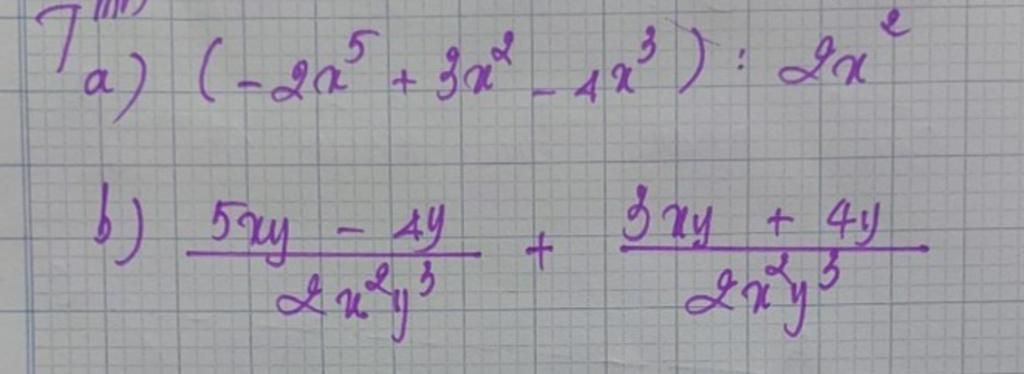 a) (-2x⁵ + 3x² - 4x³) : 2x²
b) \frac{5xy - 4y}{2x²y³} + \frac{3xy + 4y}{2x²y³}